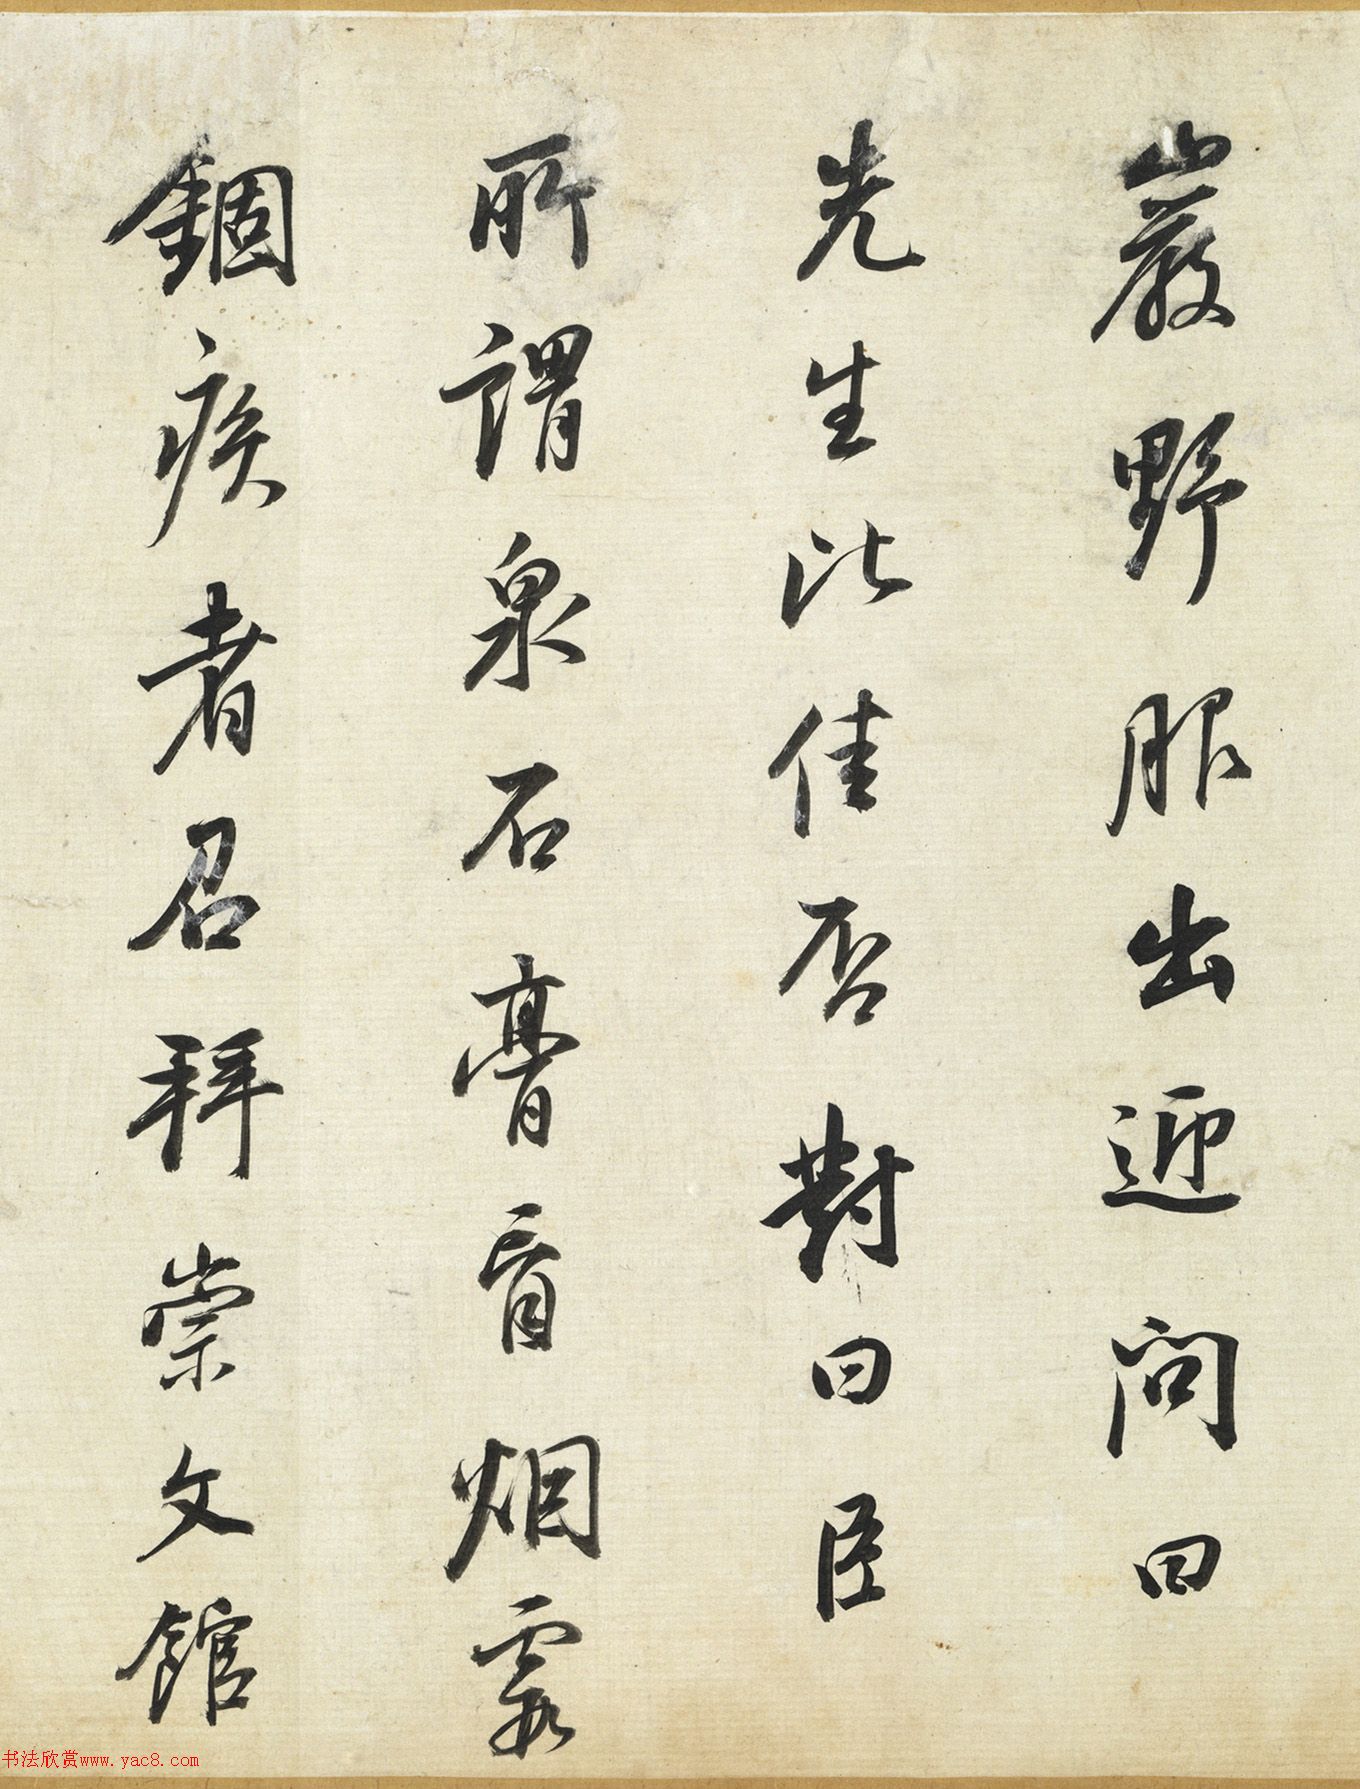 巖野服出迎問曰
先生比佳否對曰臣
所謂泉石膏肓烟霞
錮疾者召拜崇文館
书法欣赏www.yac8.com